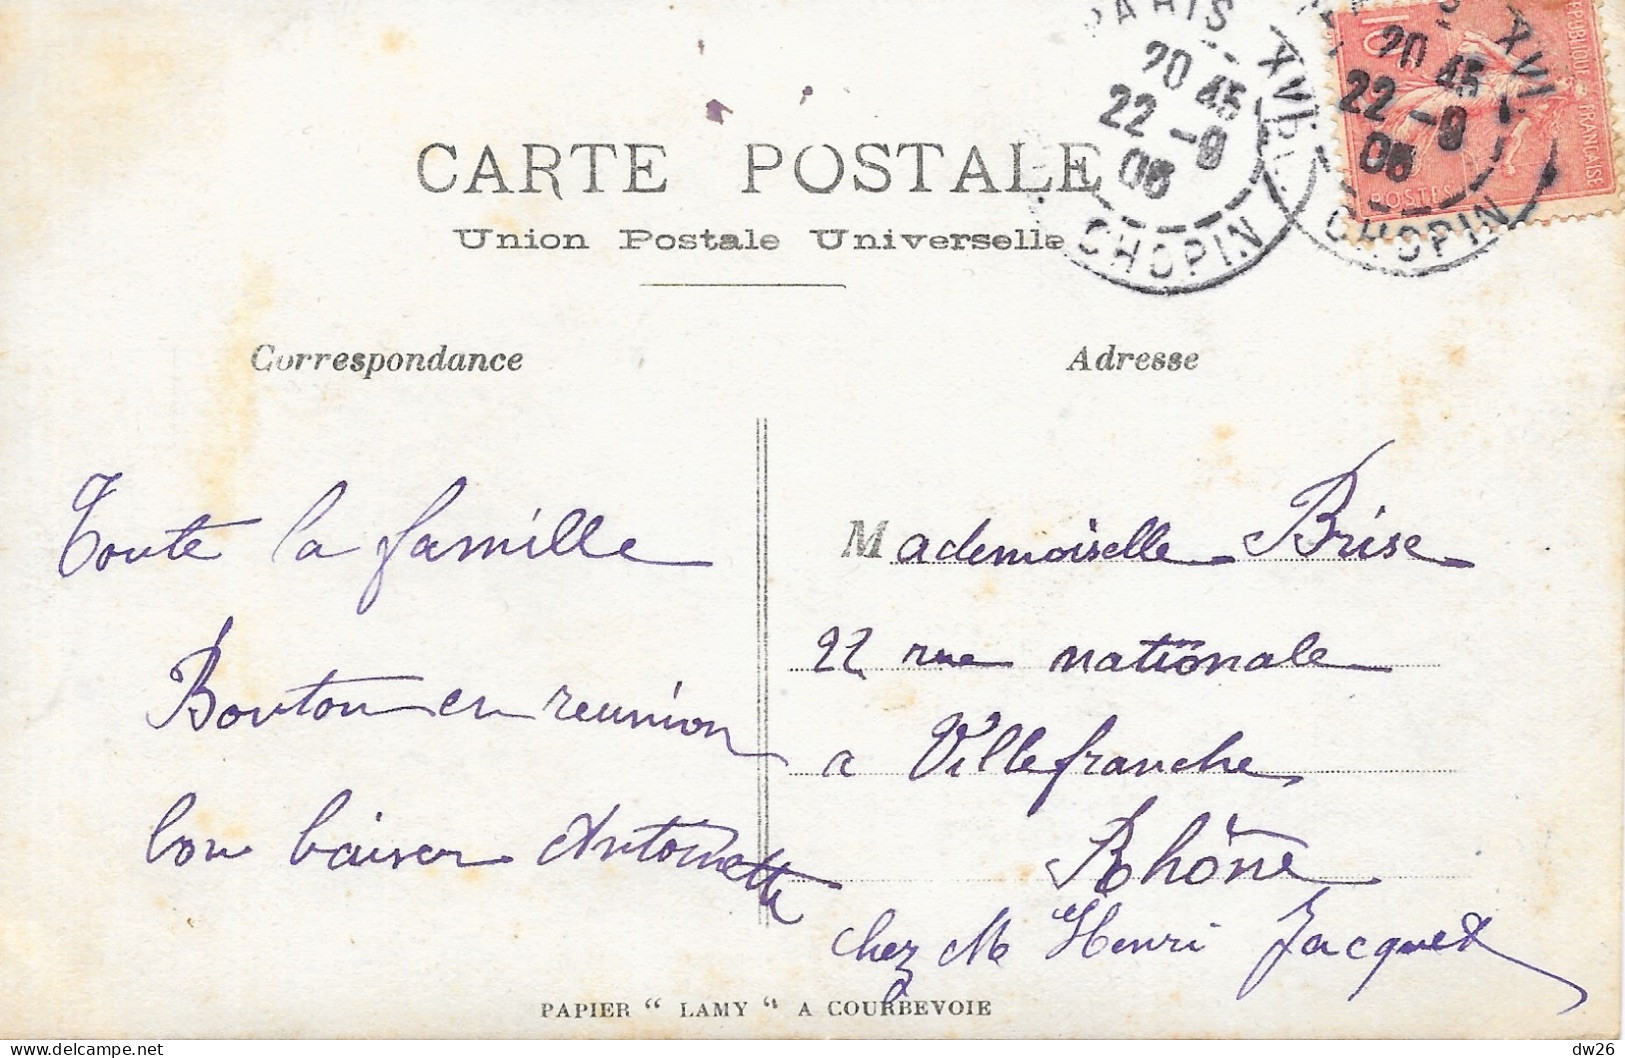 PARIS XVI
20 45
22 -9
06
CHOPIN
XVI
20 45
22 -9
06
CHOPIN
10
REPUBLIQUE FRANÇAISE
POSTES
CARTE POSTALE
Union Postale Universelle
Correspondance
Toute la famille
Bouton en reunion
bon baiser Antoinette
Adresse
Mademoiselle Brise
22 rue nationale
a Villefranche
Rhône
chez Mr Henri Jacquet
PAPIER “ LAMY “ A COURBEVOIE
dw26